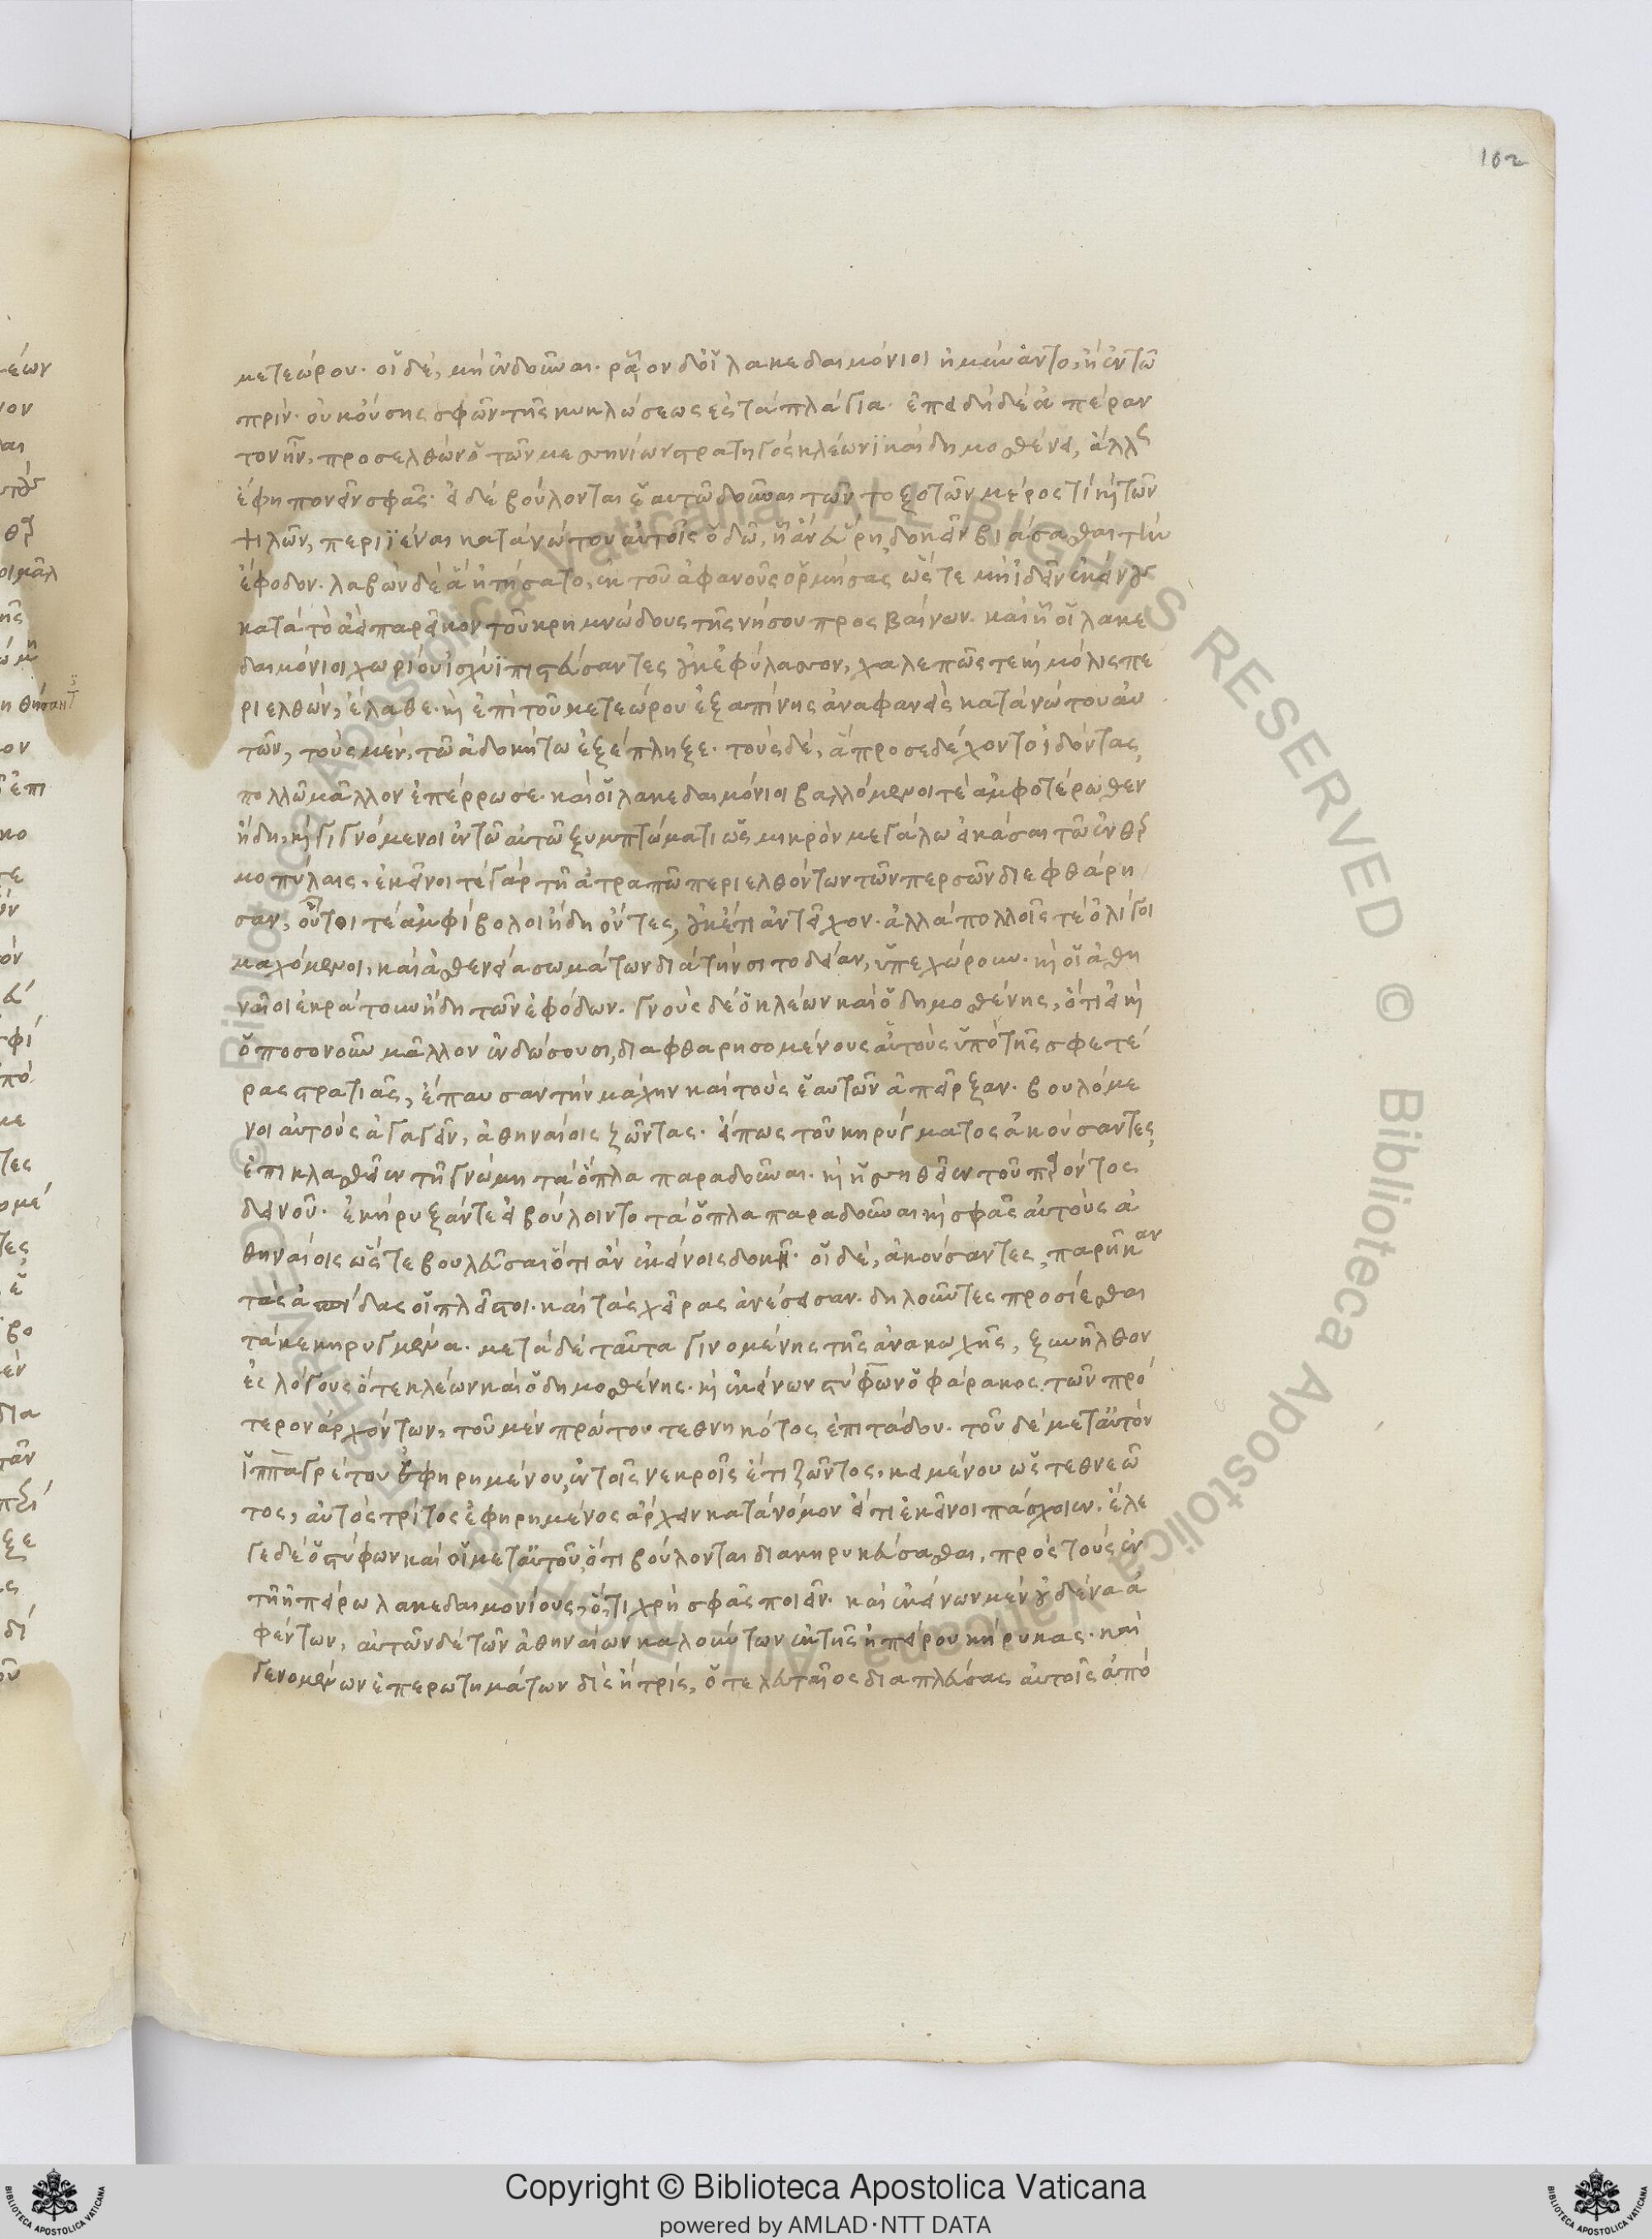 102
μετεώρου· οἱ δὲ, μὴ ἐνδοῦναι· ῥᾷον δ' οἱ λακεδαιμόνιοι ἠμύναντο, ἢ ἐν τῶ
πρίν· οὐκ οὔσης σφῶν τῆς κυκλώσεως ἐς τὰ πλάγια· ἐπειδὴ δὲ ἀπέραν
τον ἦν, προσελθὼν ὁ τῶν μεσσηνίων στρατηγὸς κλέωνι καὶ δημοσθένει, ἄλλως
ἔφη πονεῖν σφᾶς· εἰ δὲ βούλονται ἑαυτῶ δοῦναι τῶν τοξοτῶν μέρος τί καὶ τῶν
ψιλῶν, περιϊέναι κατὰ νώτου αὐτοῖς ὁδῶ, ἧ ἂν εὕρη, δοκεῖν βιάσασθαι τὴν
ἔφοδον· λαβὼν δὲ ἃ ἠτήσατο, ἐκ τοῦ ἀφανοῦς ὁρμήσας ὥστε μὴ ἰδεῖν ἐκείνους
κατὰ τὸ ἀεὶ παρεῖκον τοῦ κρημνώδους τῆς νήσου προσβαίνων· καὶ ἧ οἱ λακε
δαιμόνιοι χωρίου ἰσχύϊ πιστεύσαντες οὐκ ἐφύλασσον, χαλεπῶς τε καὶ μόλις πε
ριελθὼν, ἔλαθε· καὶ ἐπὶ τοῦ μετεώρου ἐξαπίνης ἀναφανεὶς κατὰ νώτου αὐ
τῶν, τοὺς μὲν, τῶ ἀδοκήτω ἐξέπληξε· τοὺς δὲ, ἃ προσεδέχοντο ἰδόντας,
πολλῶ μᾶλλον ἐπέρρωσε· καὶ οἱ λακεδαιμόνιοι βαλλόμενοι τὲ ἀμφοτέρωθεν
ἤδη, καὶ γιγνόμενοι ἐν τῶ αὐτῶ ξυμπτώματι ὡς μικρὸν μεγάλω εἰκάσαι τῶ ἐν θερ
μοπύλαις, ἐκεῖνοι τὲ γὰρ τῆ ἀτραπῶ περιελθόντων τῶν περσῶν διεφθάρη
σαν, οὗτοι τὲ ἀμφίβολοι ἤδη ὄντες, οὐκέτι ἀντεῖχον· ἀλλὰ πολλοῖς τὲ ὀλίγοι
μαχόμενοι, καὶ ἀσθενείᾳ σωμάτων διὰ τὴν σιτοδείαν, ὑπεχώρουν· καὶ οἱ ἀθη
ναῖοι ἐκράτουν ἤδη τῶν ἐφόδων· γνοὺς δὲ ὁ κλέων καὶ ὁ δημοσθένης, ὅτι εἰ καὶ
ὁποσονοῦν μᾶλλον ἐνδώσουσι, διαφθαρησομένους αὐτοὺς ὑπὸ τῆς σφετέ
ρας στρατιᾶς, ἔπαυσαν τὴν μάχην καὶ τοὺς ἑαυτῶν ἀπεῖρξαν· βουλόμε
νοι αὐτοὺς ἀγαγεῖν, ἀθηναίοις ζῶντας· εἴ πως τοῦ κηρύγματος ἀκούσαντες,
ἐπικλασθεῖεν τῆ γνώμη τὰ ὅπλα παραδοῦναι· καὶ ἡσσηθεῖεν τοῦ παρόντος
δεινοῦ· ἐκήρυξάν τε εἰ βούλοιντο τὰ ὅπλα παραδοῦναι καὶ σφᾶς αὐτοὺς ἀ
θηναίοις ὥστε βουλεῦσαι ὅτι ἂν ἐκείνοις δοκῆ· οἱ δὲ, ἀκούσαντες, παρῆκαν
τὰς ἀσπίδας οἱ πλεῖστοι· καὶ τὰς χεῖρας ἀνέσεισαν· δηλοῦντες προσίεσθαι
τὰ κεκηρυγμένα· μετὰ δὲ ταῦτα γινομένης τῆς ἀνακωχῆς, ξυνῆλθον
ἐς λόγους ὅτε κλέων καὶ ὁ δημοσθένης· καὶ ἐκείνων στύφων ὁ φάρακος, τῶν πρό
τερον ἀρχόντων, τοῦ μὲν πρώτου τεθνηκότος ἐπιτάδου· τοῦ δὲ μετ' αὐτὸν
ἱππαγρέτου ἐφηρημένου, ἐν τοῖς νεκροῖς ἔτι ζῶντος, κειμένου ὡς τεθνεῶ
τος, αὐτὸς τρίτος ἐφηρημένος ἄρχειν κατὰ νόμον εἴ τι ἐκεῖνοι πάσχοιεν. ἔλε
γε δὲ ὁ στύφων καὶ οἱ μετ' αὐτοῦ, ὅτι βούλονται διακηρυκεύσασθαι, πρὸς τοὺς ἐν
τῆ ἠπείρω λακεδαιμονίους, ὅ,τι χρὴ σφᾶς ποιεῖν· καὶ ἐκείνων μὲν οὐδένα ἀ
φέντων, αὐτῶν δὲ τῶν ἀθηναίων καλούντων ἐκ τῆς ἠπείρου κήρυκας· καὶ
γενομένων ἐπερωτημάτων δὶς ἢ τρὶς, ὁ τελευταῖος διαπλεύσας αὐτοῖς ἀπὸ
Copyright © Biblioteca Apostolica Vaticana
powered by AMLAD·NTT DATA